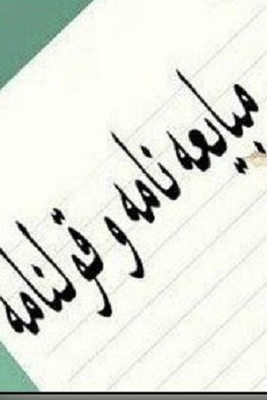 مبایعه نامه و قولنامه